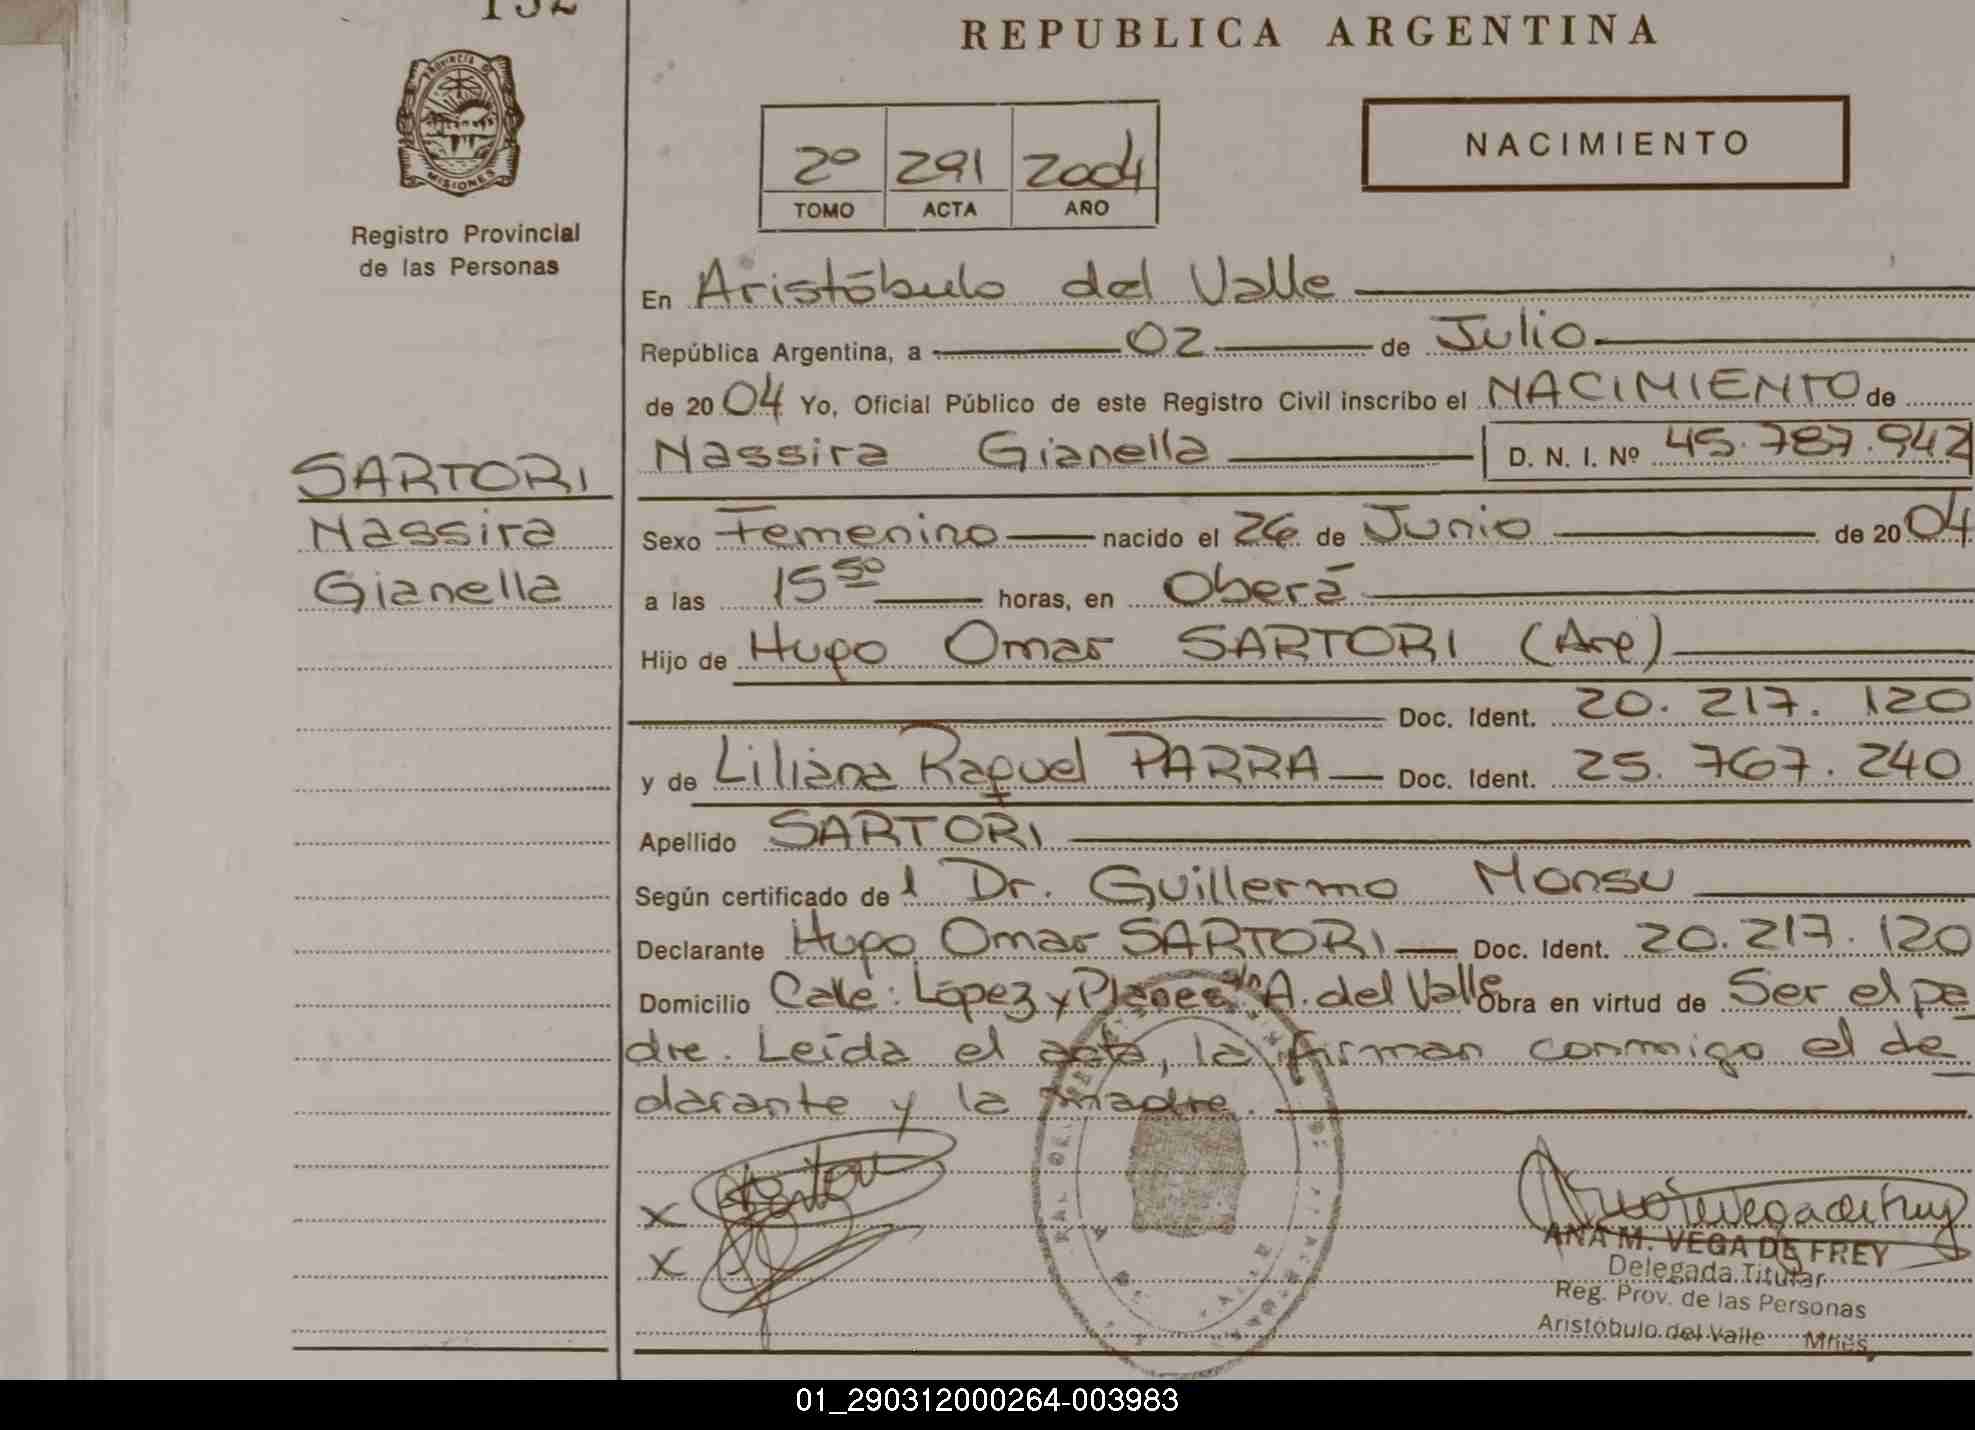 REPUBLICA ARGENTINA
PROVINCIA DE
MISIONES
Registro Provincial
de las Personas
2º 291 2004
TOMO ACTA AÑO
NACIMIENTO
SARTORI
Nassira
Gianella
En Aristóbulo del Valle
República Argentina, a 02 de Julio
de 2004 Yo, Oficial Público de este Registro Civil inscribo el NACIMIENTO de
Nassira Gianella D. N. I. Nº 45.787.942
Sexo Femenino nacido el 26 de Junio de 2004
a las 15 50 horas, en Oberá
Hijo de Hugo Omar SARTORI (Arg)
Doc. Ident. 20.217.120
y de Liliana Raquel PARRA Doc. Ident. 25.767.240
Apellido SARTORI
Según certificado del Dr. Guillermo Monsu
Declarante Hugo Omar SARTORI Doc. Ident. 20.217.120
Domicilio Calle: López y Planes A. del Valle Obra en virtud de Ser el pa
dre. Leída el acta, la firman conmigo el de
clarante y la madre.
X
X
ANA M. VEGA DE FREY
Delegada Titular
Reg. Prov. de las Personas
Aristóbulo del Valle Mnes.
01_290312000264-003983